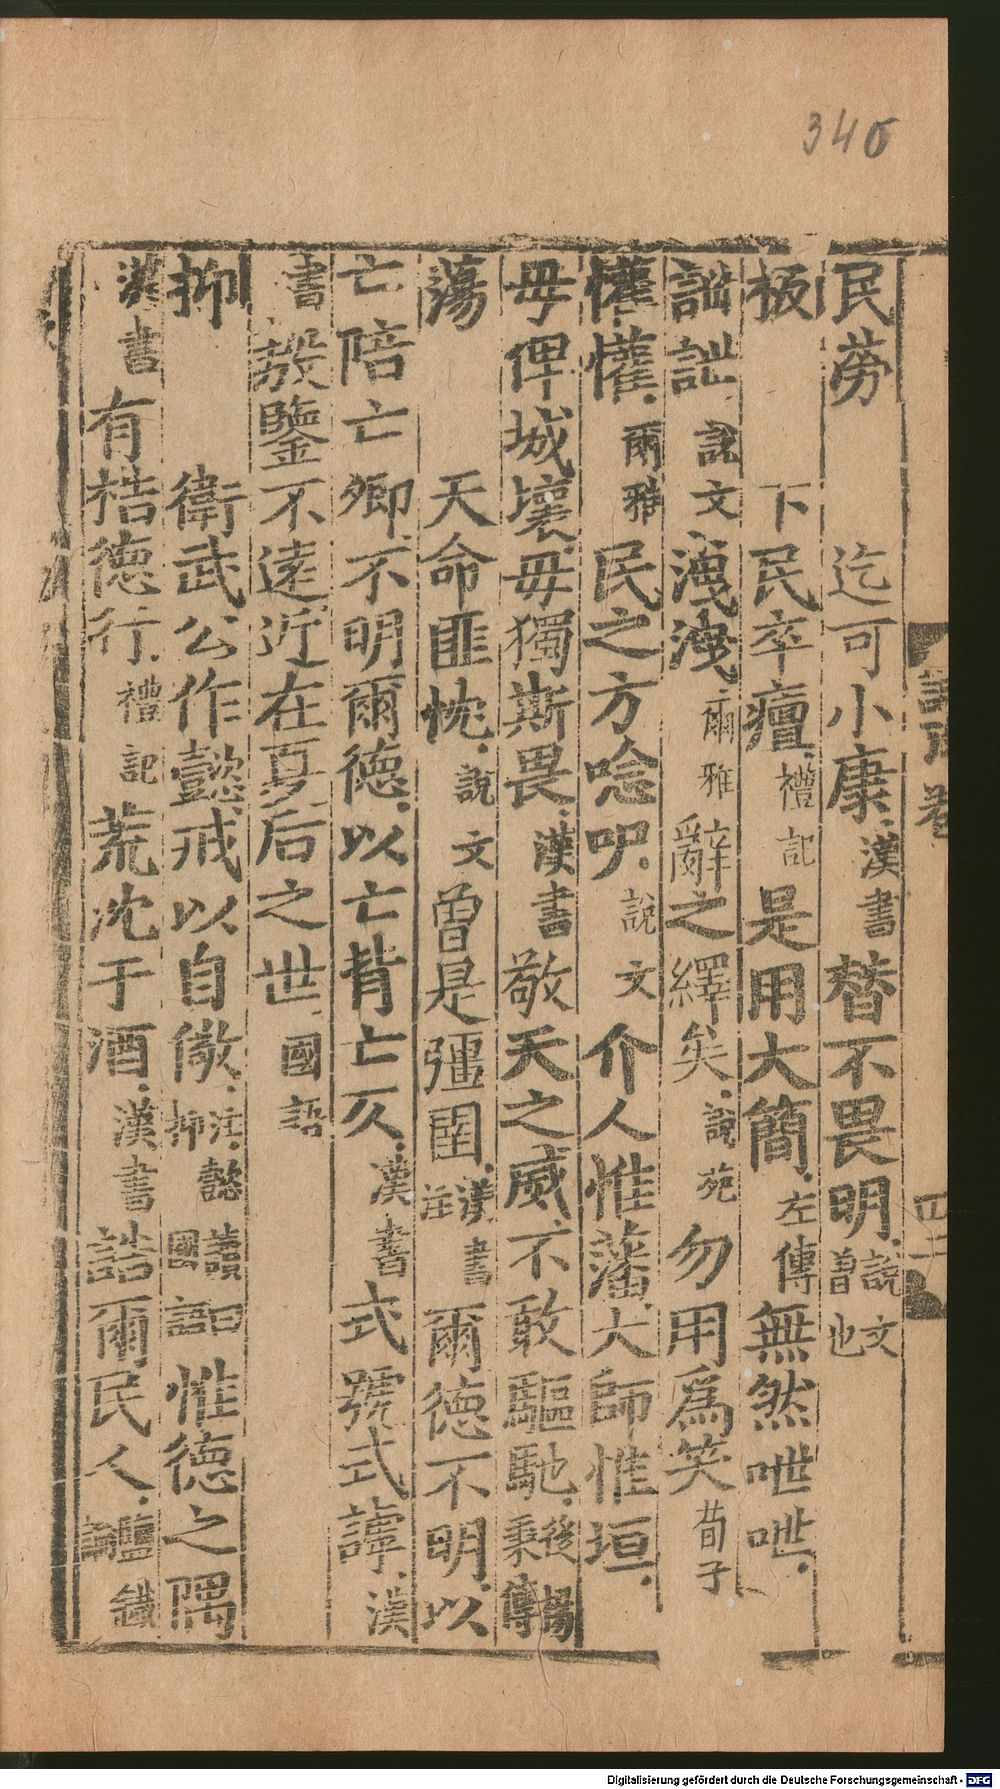 340
詩攷卷
四十
民勞 迄可小康漢書朁不畏明說文曾也
板 下民卒癉禮記是用大簡左傳無然呭呭
詍詍說文洩洩爾雅辭之繹矣說苑勿用爲笑荀子
懽懽爾雅民之方唸㕧說文介人惟藩大師惟垣
毋俾城壞毋獨斯畏漢書敬天之威不敢驅馳後漢楊秉傳
蕩 天命匪忱說文曾是彊圉漢書注爾德不明以
亡陪亡卿不明爾德以亡背亡仄漢書式號式謼漢
書殷鑒不遠近在夏后之世國語
抑 衛武公作懿戒以自儆注懿讀曰抑國語惟德之隅
漢書有梏德行禮記荒沈于酒漢書誥爾民人鹽鐵
Digitalisierung gefördert durch die Deutsche Forschungsgemeinschaft - DFG